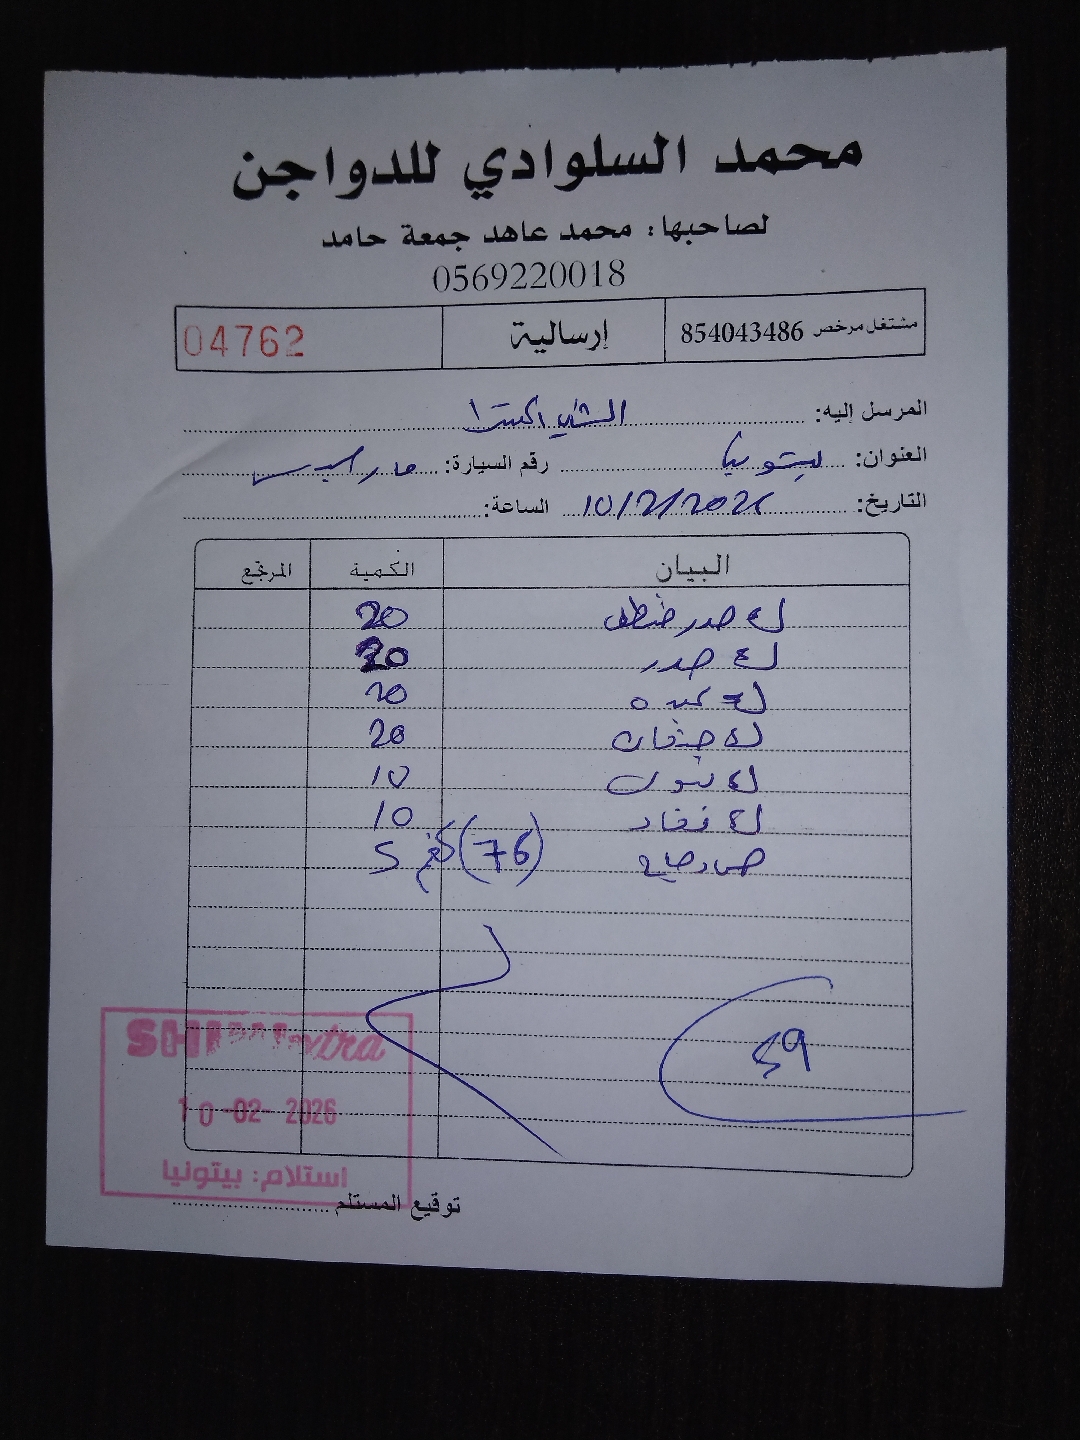 محمد السلوادي للدواجن
لصاحبها: محمد عاهد جمعة حامد
0569220018
مشتغل مرخص 854043486 إرسالية 04762
المرسل إليه: الشني اكسترا
العنوان: بيتونيا رقم السيارة:
التاريخ: 10/2/2026 الساعة:
البيان الكمية المرتجع
صدر 20
صدر 20
كبده 20
20
10
10
(76) كغم 5
59
SHINI extra
10-02-2026
استلام: بيتونيا
توقيع المستلم